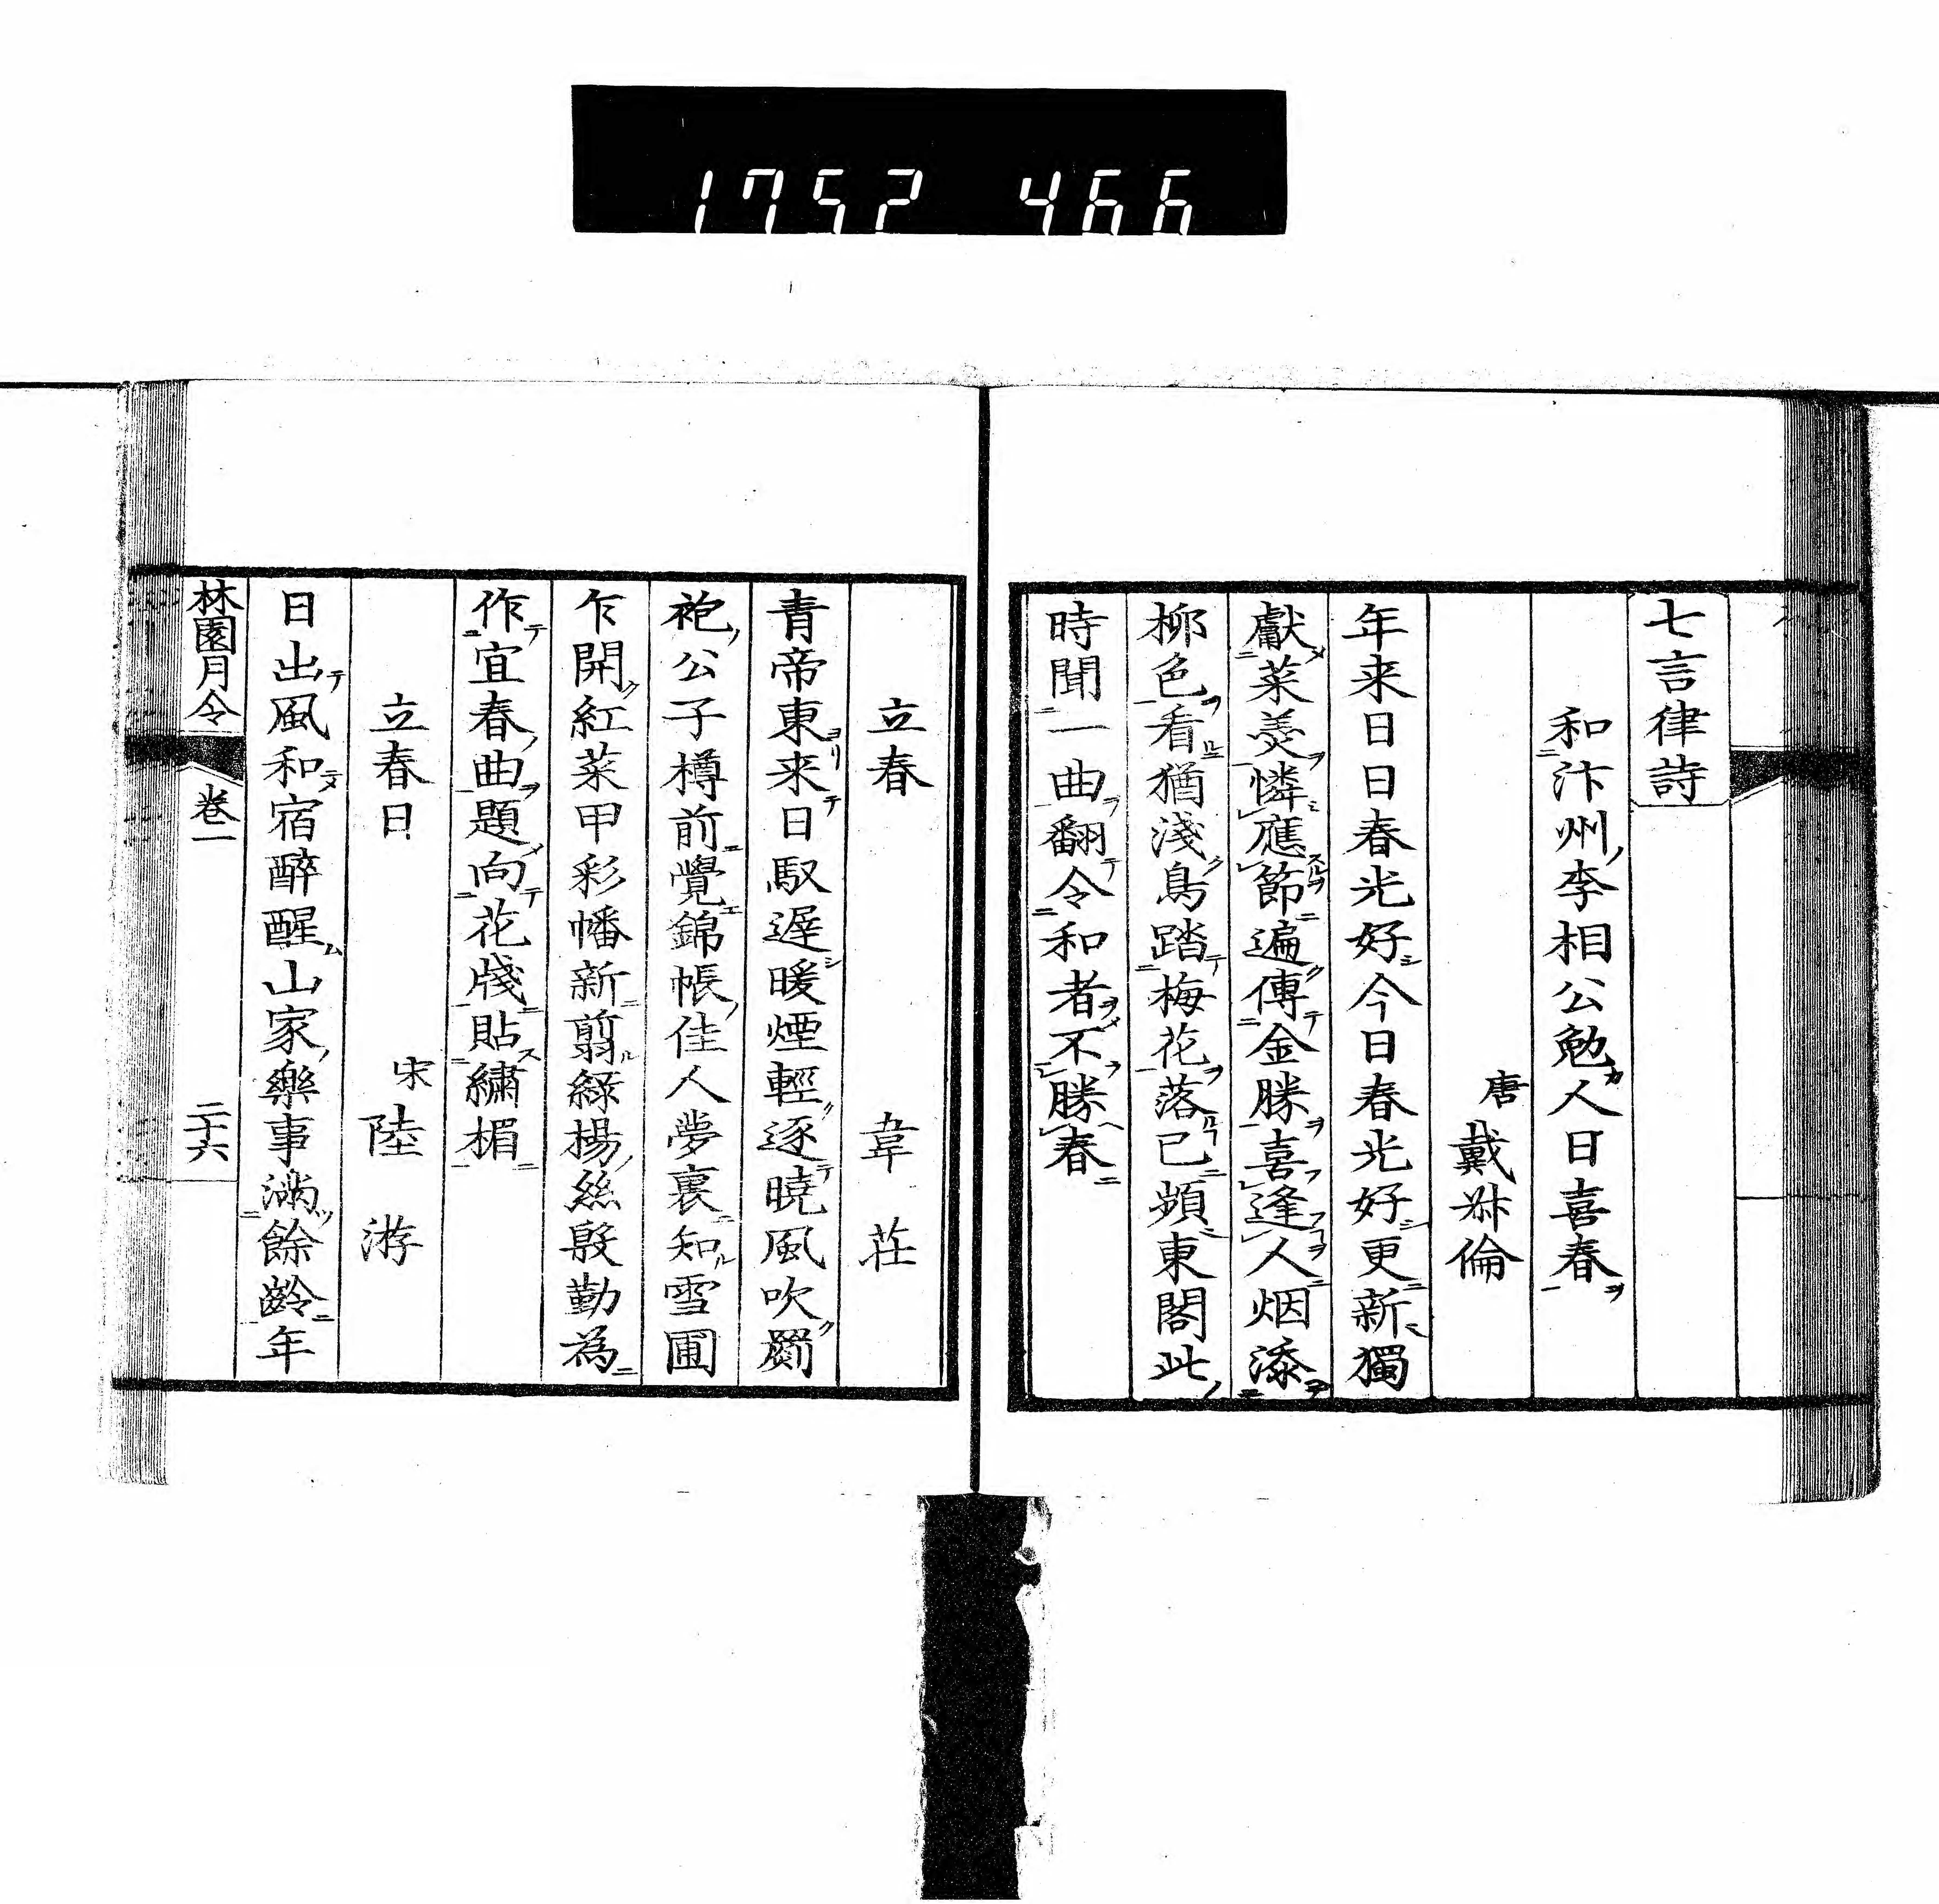 1752 466
七言律詩
和汴州李相公勉人日喜春
唐 戴叔倫
年来日日春光好今日春光好更新獨
獻菜羹憐應節遍傳金勝喜逢人烟添
柳色看猶淺鳥踏梅花落已頻東閣此
時聞一曲翻令和者不勝春
立春 韋莊
青帝東来日馭遲暖煙輕逐曉風吹罽
袍公子樽前覺錦帳佳人夢裏知雪圃
乍開紅菜甲彩幡新翦綠楊絲殷勤為
作宜春曲題向花牋貼繡楣
立春日 宋 陸游
日出風和宿醉醒山家樂事滿餘齡年
林園月令 卷一 二十六